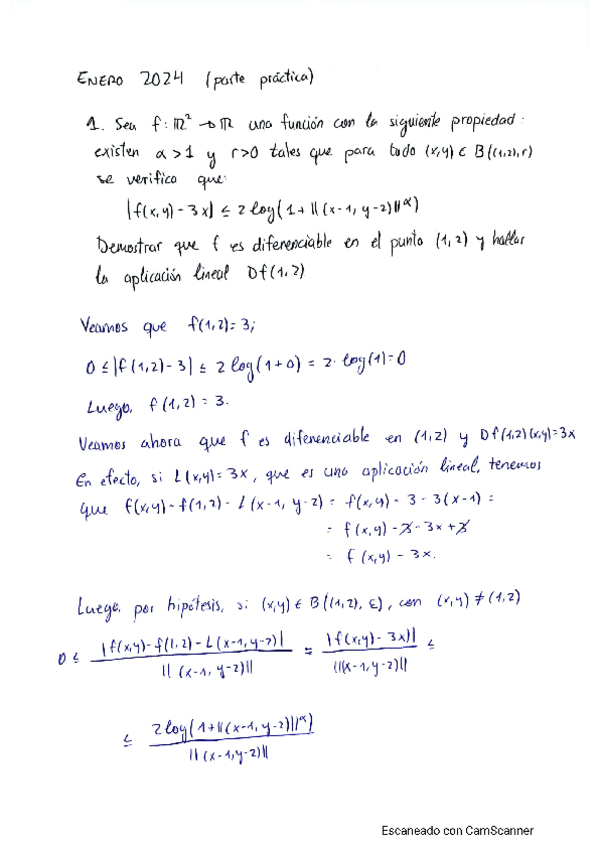 ENERO 2024 (parte práctica)
1. Sea f: ℝ² → ℝ una función con la siguiente propiedad:
existen α > 1 y r>0 tales que para todo (x,y) ∈ B((1,2),r)
se verifica que:
|f(x,y) - 3x| ≤ 2 log(1 + ||(x-1, y-2)||^α)
Demostrar que f es diferenciable en el punto (1,2) y hallar
la aplicación lineal Df(1,2)
Veamos que f(1,2) = 3;
0 ≤ |f(1,2) - 3| ≤ 2 log(1+0) = 2· log(1) = 0
Luego, f(1,2) = 3.
Veamos ahora que f es diferenciable en (1,2) y Df(1,2)(x,y)=3x
En efecto, si L(x,y) = 3x, que es una aplicación lineal, tenemos
que f(x,y) - f(1,2) - L(x-1, y-2) = f(x,y) - 3 - 3(x-1) =
= f(x,y) - 3 - 3x + 3
= f(x,y) - 3x.
Luego, por hipótesis, si (x,y) ∈ B((1,2), ε), con (x,y) ≠ (1,2)
0 ≤ |f(x,y) - f(1,2) - L(x-1, y-2)| / ||(x-1, y-2)|| = |f(x,y) - 3x)| / ||(x-1, y-2)|| ≤
≤ 2 log(1+||(x-1, y-2)||^α) / ||(x-1, y-2)||
Escaneado con CamScanner